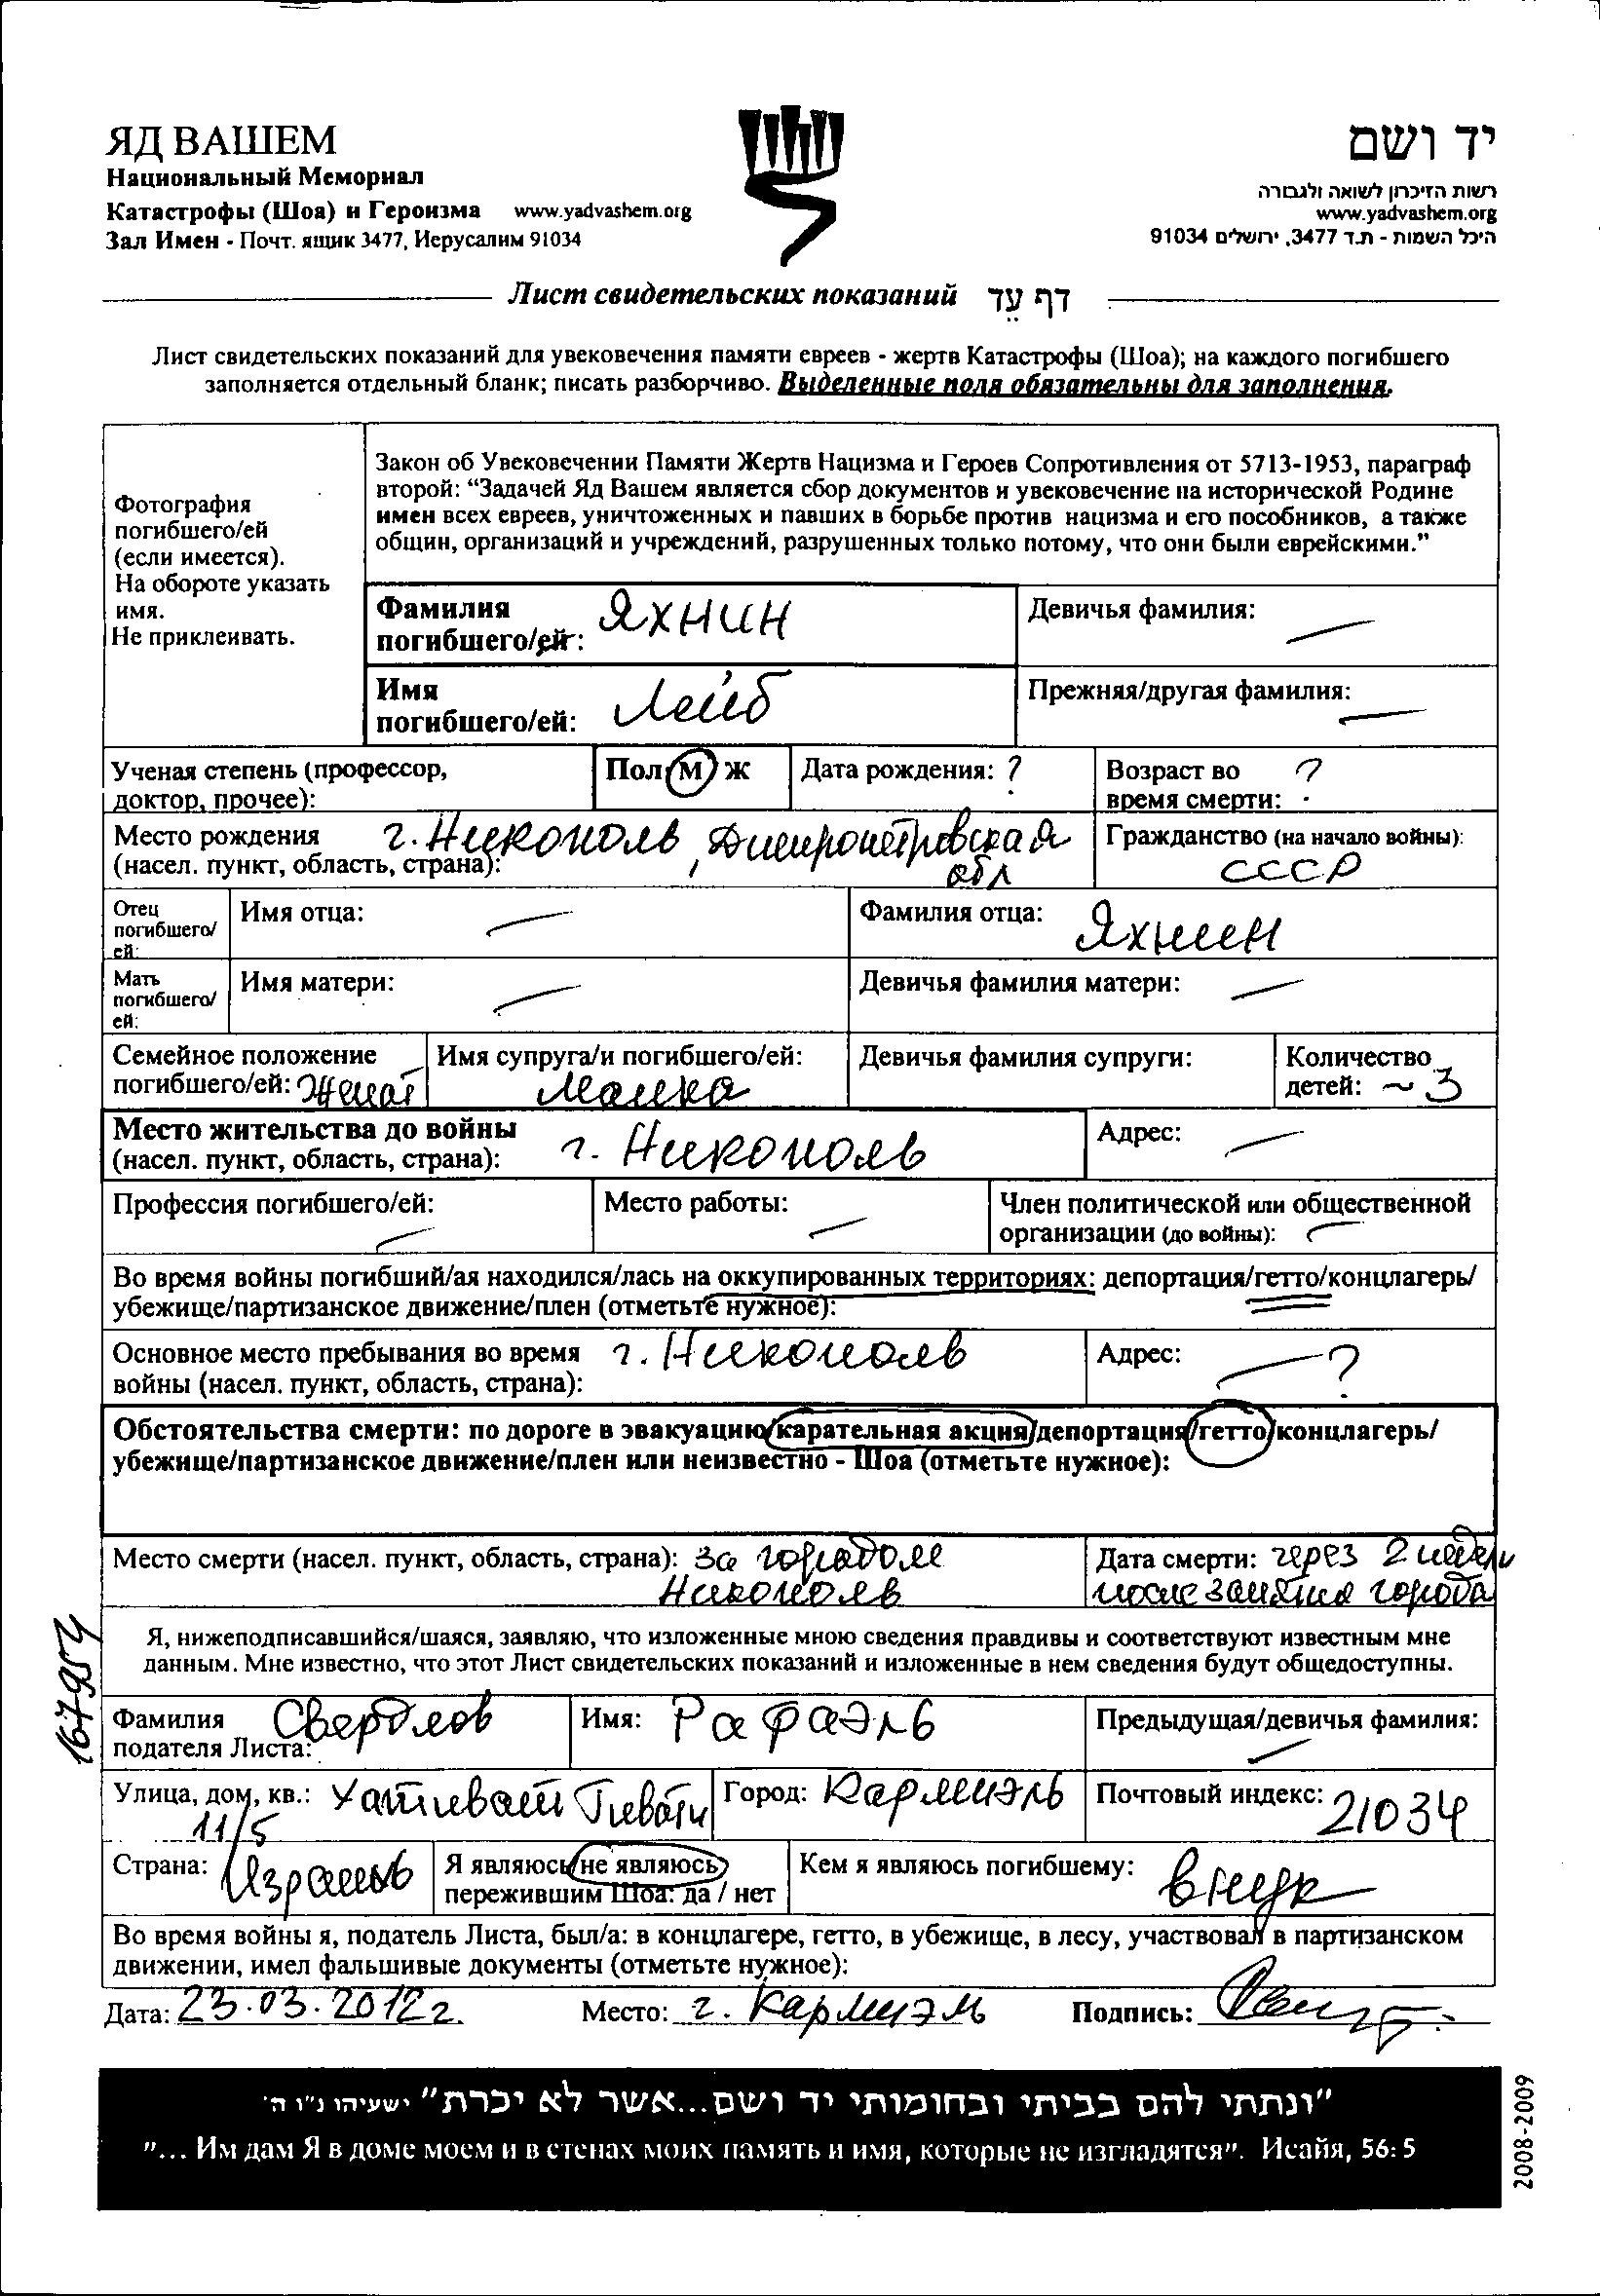 ЯД ВАШЕМ
Национальный Мемориал
Катастрофы (Шоа) и Героизма www.yadvashem.org
Зал Имен - Почт. ящик 3477, Иерусалим 91034
יד ושם
רשות הזיכרון לשואה ולגבורה
www.yadvashem.org
היכל השמות - ת.ד 3477, ירושלים 91034
Лист свидетельских показаний דף עֵד
Лист свидетельских показаний для увековечения памяти евреев - жертв Катастрофы (Шоа); на каждого погибшего
заполняется отдельный бланк; писать разборчиво. Выделенные поля обязательны для заполнения.
Фотография
погибшего/ей
(если имеется).
На обороте указать
имя.
Не приклеивать.
Закон об Увековечении Памяти Жертв Нацизма и Героев Сопротивления от 5713-1953, параграф
второй: “Задачей Яд Вашем является сбор документов и увековечение на исторической Родине
имен всех евреев, уничтоженных и павших в борьбе против нацизма и его пособников, а также
общин, организаций и учреждений, разрушенных только потому, что они были еврейскими.”
Фамилия
погибшего/ей: Яхнин
Девичья фамилия: —
Имя
погибшего/ей: Лейб
Прежняя/другая фамилия: —
Ученая степень (профессор,
доктор, прочее):
Пол М Ж
Дата рождения: ?
Возраст во
время смерти: ?
Место рождения г. Никополь, Днепропетровская
(насел. пункт, область, страна): обл
Гражданство (на начало войны):
СССР
Отец
погибшего/
ей:
Имя отца: —
Фамилия отца: Яхнин
Мать
погибшего/
ей:
Имя матери: —
Девичья фамилия матери: —
Семейное положение
погибшего/ей: Женат
Имя супруга/и погибшего/ей:
Манка
Девичья фамилия супруги:
Количество
детей: ~ 3
Место жительства до войны
(насел. пункт, область, страна): г. Никополь
Адрес: —
Профессия погибшего/ей: —
Место работы: —
Член политической или общественной
организации (до войны): —
Во время войны погибший/ая находился/лась на оккупированных территориях: депортация/гетто/концлагерь/
убежище/партизанское движение/плен (отметьте нужное):
Основное место пребывания во время г. Никополь
войны (насел. пункт, область, страна):
Адрес: — ?
Обстоятельства смерти: по дороге в эвакуацию/карательная акция/депортация/гетто/концлагерь/
убежище/партизанское движение/плен или неизвестно - Шоа (отметьте нужное):
Место смерти (насел. пункт, область, страна): за городом
Никополь
Дата смерти: через 2 недели
после занятия города
Я, нижеподписавшийся/шаяся, заявляю, что изложенные мною сведения правдивы и соответствуют известным мне
данным. Мне известно, что этот Лист свидетельских показаний и изложенные в нем сведения будут общедоступны.
167954
Фамилия
подателя Листа: Свердлов
Имя: Рафаэль
Предыдущая/девичья фамилия:
—
Улица, дом, кв.: Хативат Гивати
11/5
Город: Кармиэль
Почтовый индекс: 21034
Страна: Израиль
Я являюсь/не являюсь
пережившим Шоа: да / нет
Кем я являюсь погибшему: внук
Во время войны я, податель Листа, был/а: в концлагере, гетто, в убежище, в лесу, участвовал в партизанском
движении, имел фальшивые документы (отметьте нужное):
Дата: 23.03.2012 г. Место: г. Кармиэль Подпись:
"ונתתי להם בביתי ובחומותי יד ושם...אשר לא יכרת" ישעיהו נ"ו ה'
"... Им дам Я в доме моем и в стенах моих память и имя, которые не изгладятся". Исайя, 56: 5
2008-2009